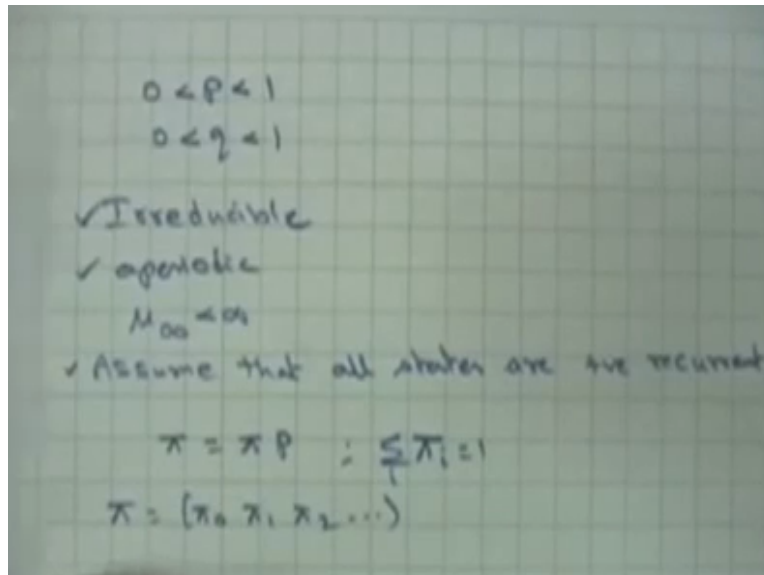 0 < p < 1
0 < q < 1
✓ Irreducible
✓ aperiodic
μ₀₀ < ∞
✓ Assume that all states are +ve recurrent
π = π P ; Σᵢ πᵢ = 1
π = (π₀ π₁ π₂ ...)